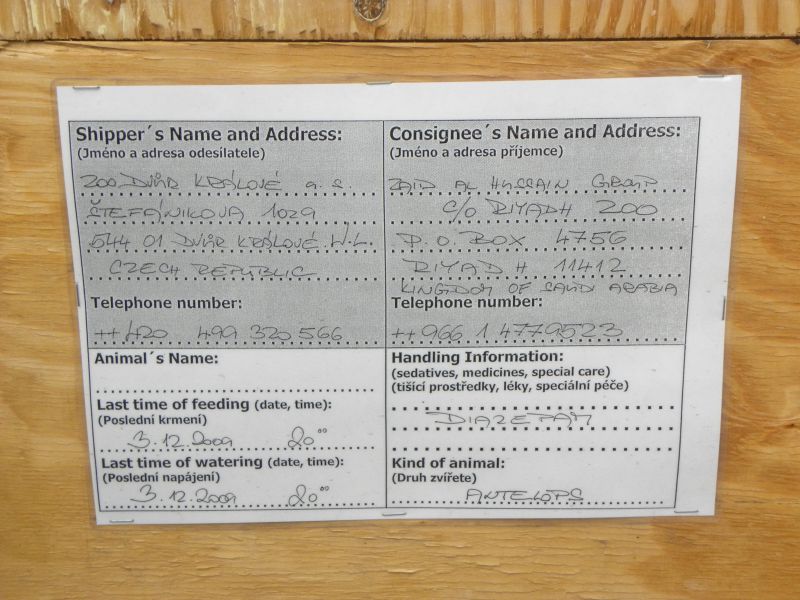 Shipper´s Name and Address:
(Jméno a adresa odesílatele)
ZOO DVŮR KRÁLOVÉ a.s.
ŠTEFÁNIKOVA 1029
544 01 DVŮR KRÁLOVÉ N.L.
CZECH REPUBLIC
Telephone number:
++420 499 320 566
Consignee´s Name and Address:
(Jméno a adresa příjemce)
ZAID AL HUSSAIN GROUP
C/O RIYADH ZOO
P.O. BOX 4756
RIYADH 11412
KINGDOM OF SAUDI ARABIA
Telephone number:
++966 1 4779523
Animal´s Name:
Last time of feeding (date, time):
(Poslední krmení)
3.12.2009 20°°
Last time of watering (date, time):
(Poslední napájení)
3.12.2009 20°°
Handling Information:
(sedatives, medicines, special care)
(tišící prostředky, léky, speciální péče)
DIAZEPAM
Kind of animal:
(Druh zvířete)
ANTELOPS